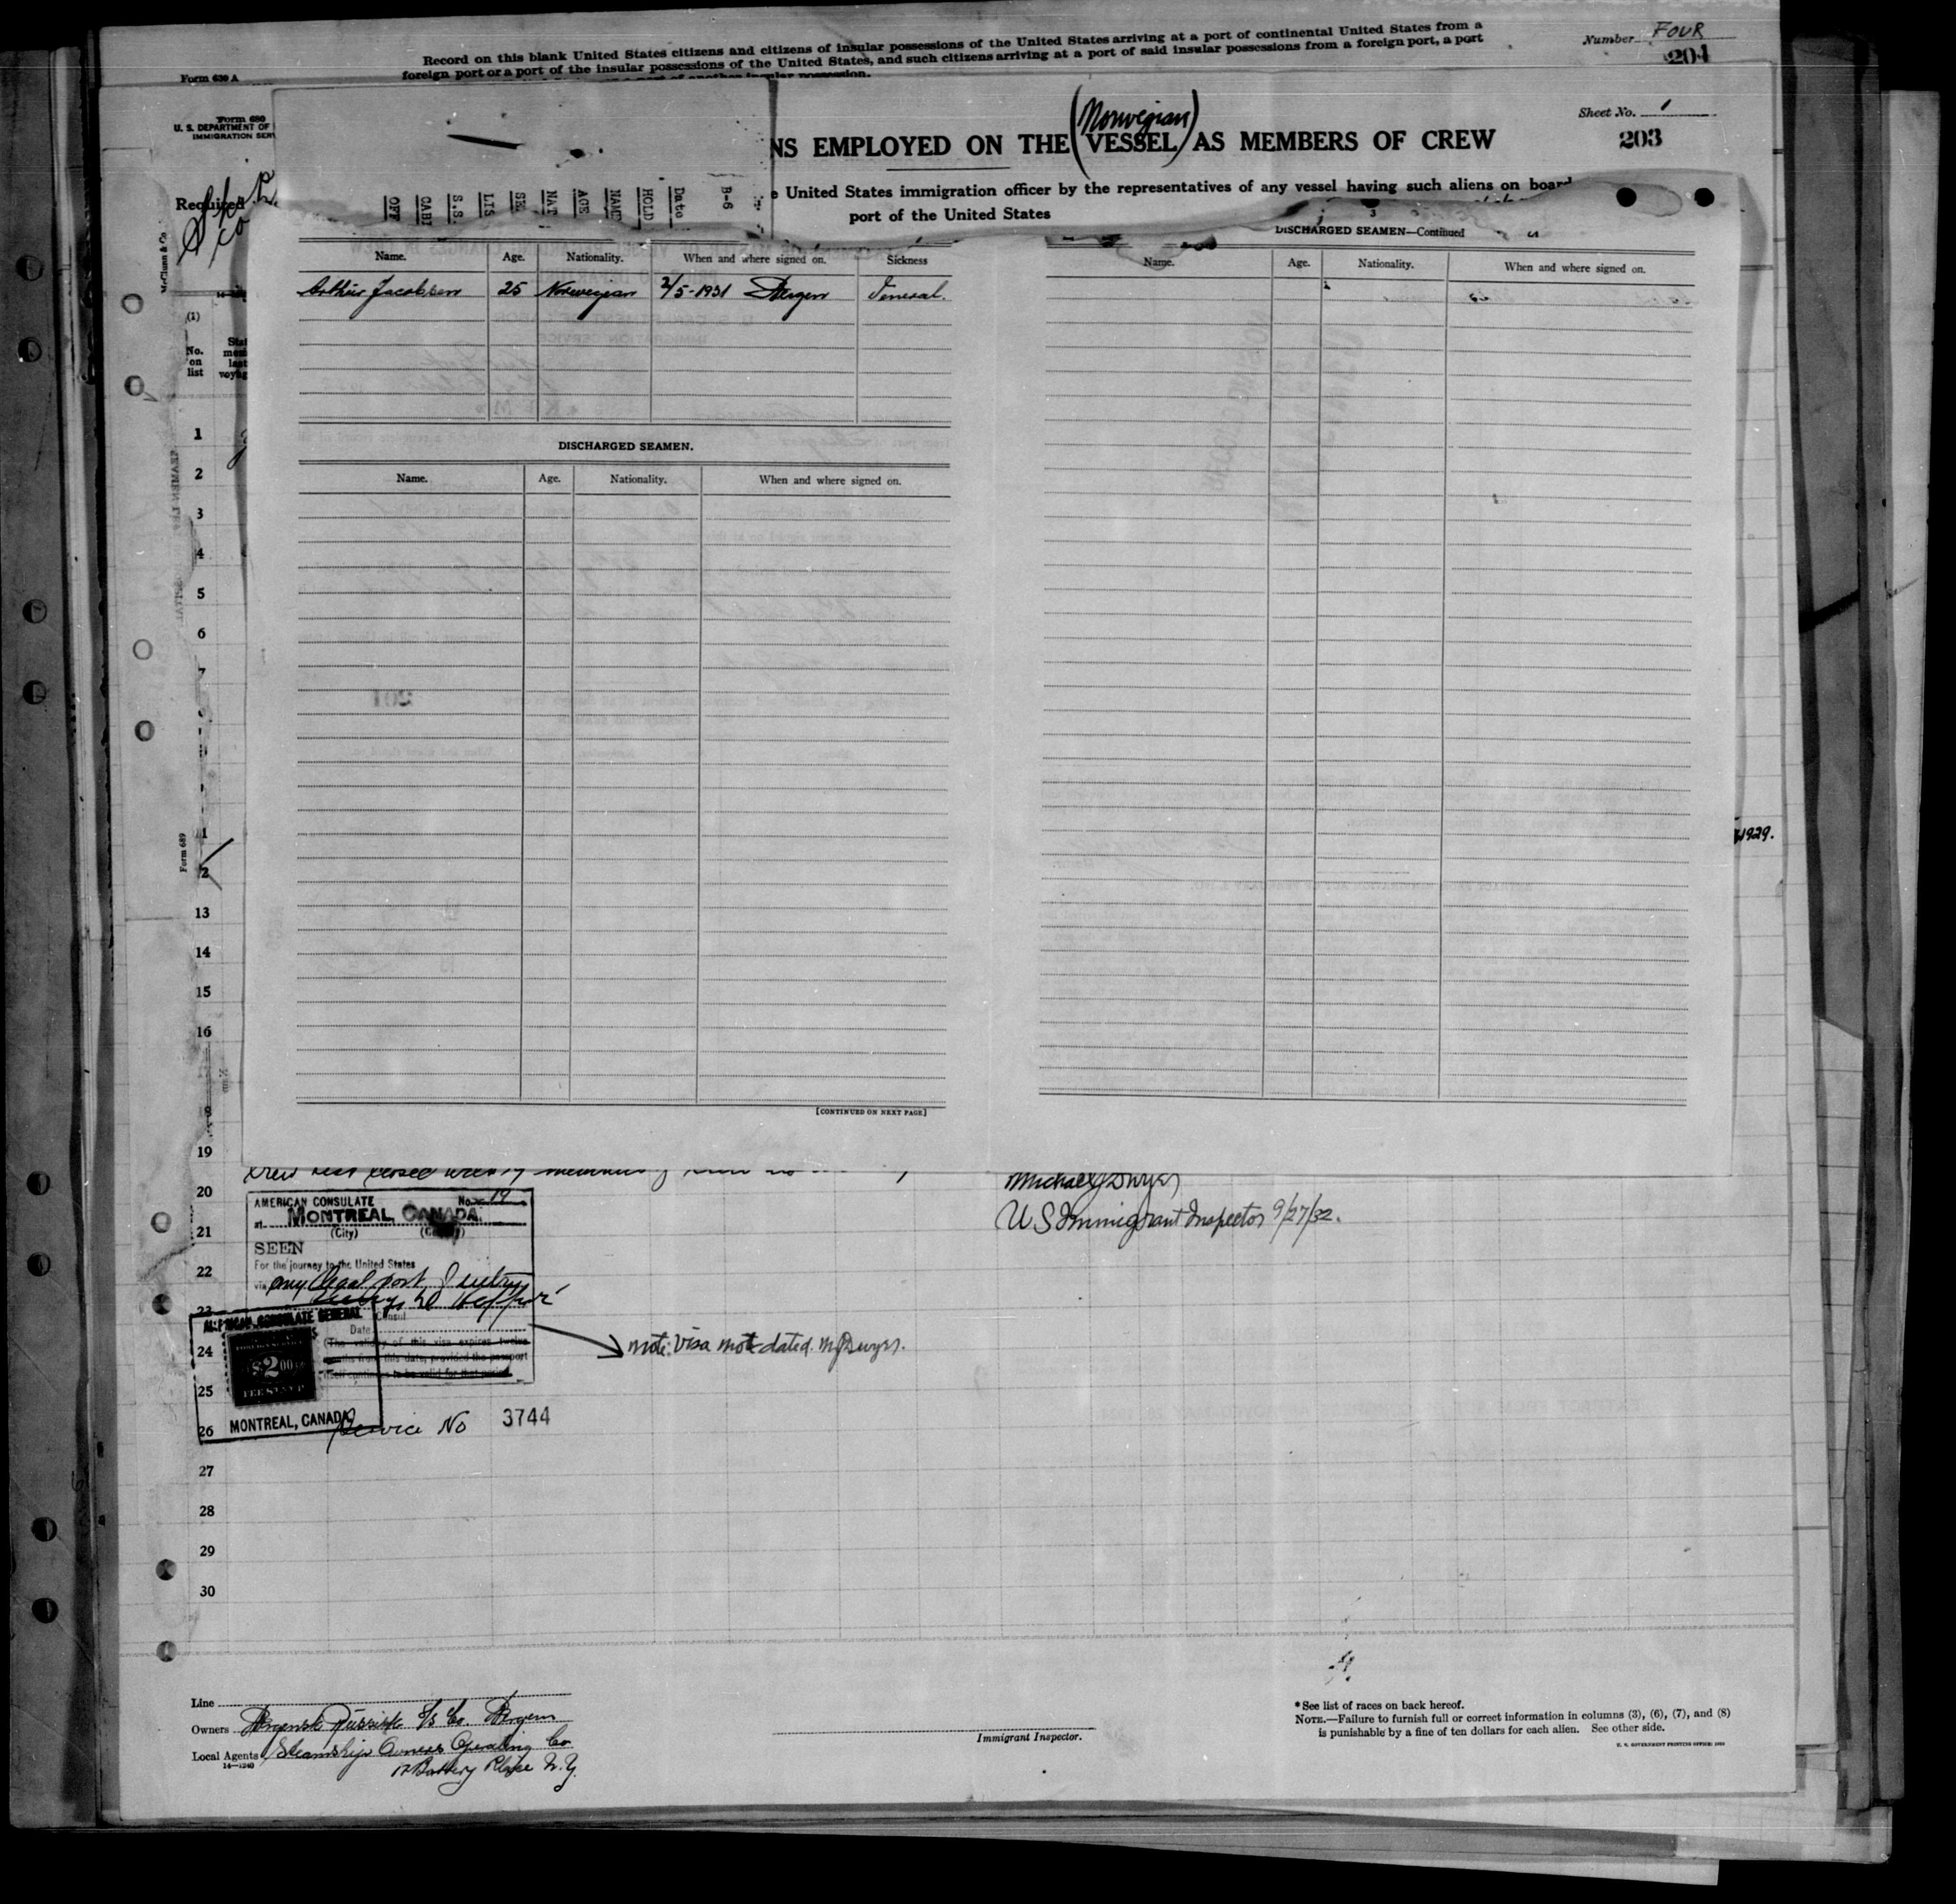 Form 630 A
Record on this blank United States citizens and citizens of insular possessions of the United States arriving at a port of continental United States from a
foreign port or a port of the insular possessions of the United States, and such citizens arriving at a port of said insular possessions from a foreign port, a port
Number FOUR
204
Form 680
U. S. DEPARTMENT OF
IMMIGRATION SERV
(Norwegian)
Sheet No. 1
NS EMPLOYED ON THE VESSEL AS MEMBERS OF CREW
203
Required
e United States immigration officer by the representatives of any vessel having such aliens on board
port of the United States
OFF
CABI
S.S.
LIS
SE
NAT
AGE
NAME
HOLD
Date
B-6
3
DISCHARGED SEAMEN—Continued
Name. Age. Nationality. When and where signed on. Sickness
Name. Age. Nationality. When and where signed on.
Arthur Jacobsen 25 Norwegian 2/5-1931 Bergen Veneral.
(1)
No. on list
DISCHARGED SEAMEN.
Name. Age. Nationality. When and where signed on.
1
2
3
4
5
6
7
Form 689
1929.
13
14
15
16
[CONTINUED ON NEXT PAGE]
19
20
21
22
23
24
25
26
27
28
29
30
Michael J Dwyer
U S Immigrant Inspector 9/27/32.
AMERICAN CONSULATE No. 19
at MONTREAL, CANADA.
(City)
SEEN
For the journey to the United States
via any legal port of entry
Consul
Date
(The validity of this visa expires twelve
months from this date, provided the passport
itself continues to be valid for that period
note: Visa not dated. MJDwyer.
AMERICAN CONSULATE GENERAL
$2.00
FEE STAMP
MONTREAL, CANADA
Service No 3744
Line
Owners Bergenske S/S Co. Bergen
Local Agents Steamship Owners Operating Co
17 Battery Place N.Y.
14—1240
Immigrant Inspector.
* See list of races on back hereof.
NOTE.—Failure to furnish full or correct information in columns (3), (6), (7), and (8)
is punishable by a fine of ten dollars for each alien. See other side.